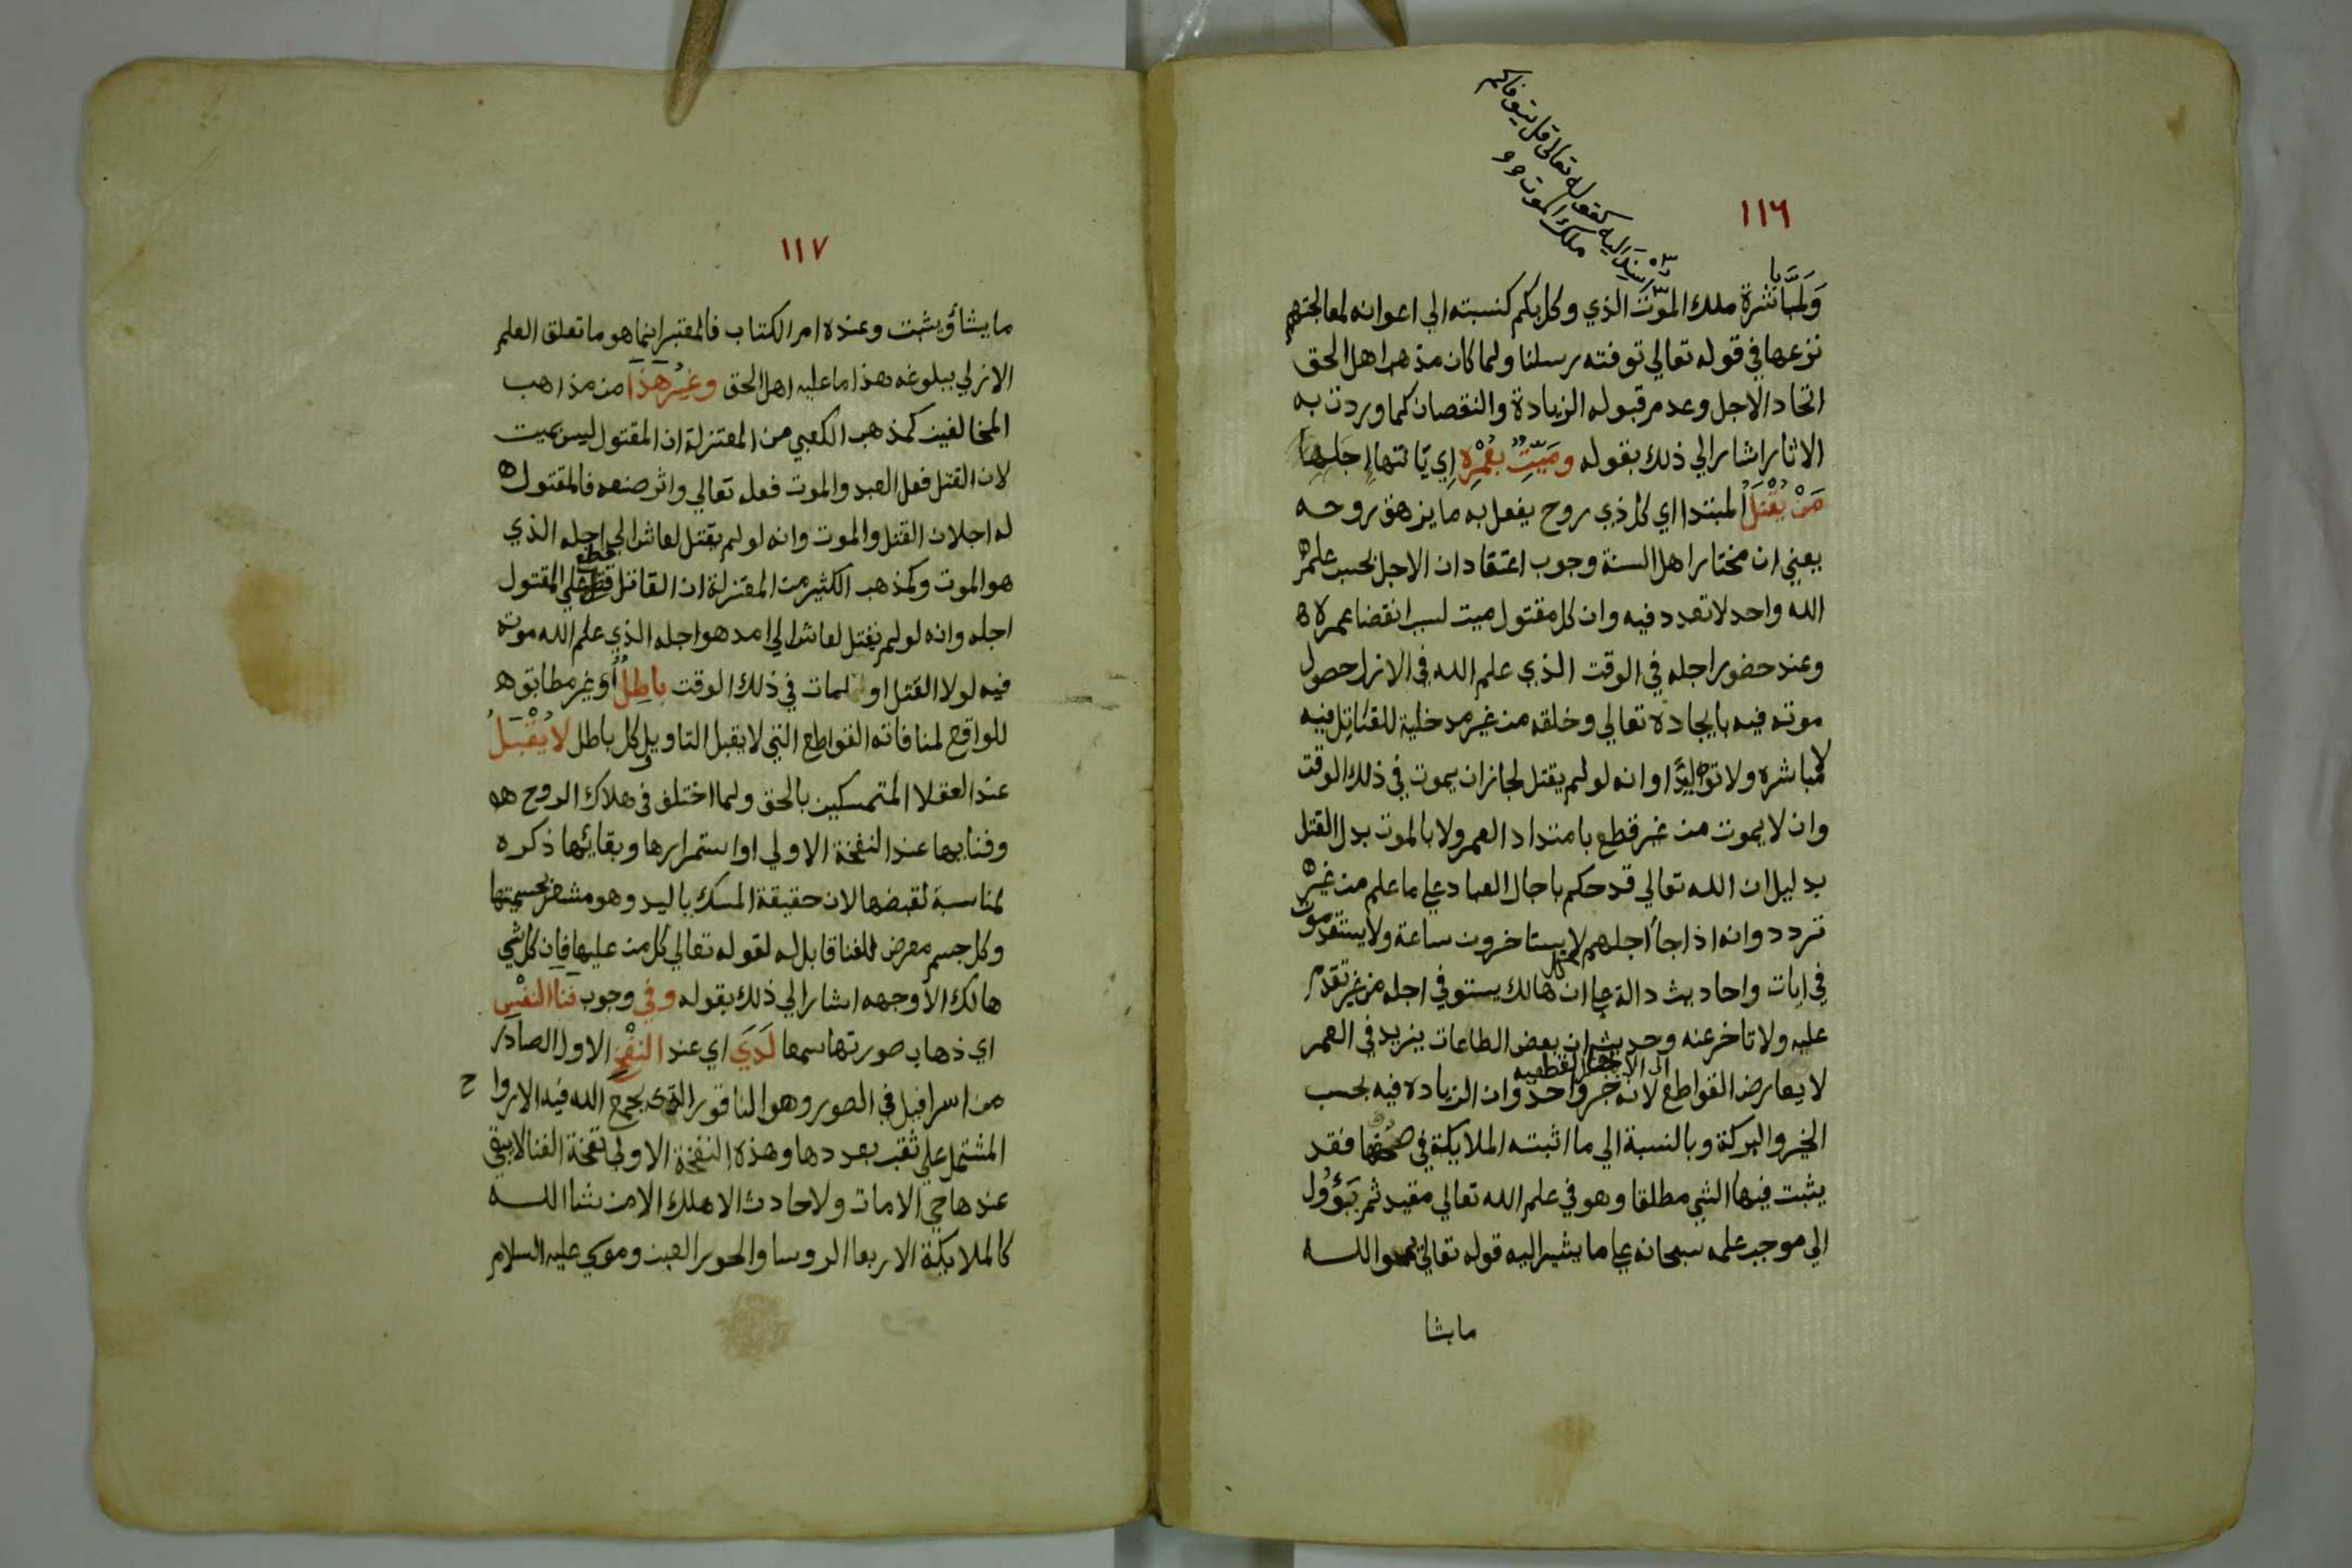 ١١٦
اسند اليه كقوله تعالى قل يتوفاكم
ملك الموت
ولمباشرة ملك الموت الذي وكل بكم كنسبته الي اعوانه لمعالجتهم
نزعها في قوله تعالي توفته رسلنا ولما كان مذهب اهل الحق
اتحاد الاجل وعدم قبوله الزيادة والنقصان كما وردت به
الاثار اشار الي ذلك بقوله وميت بعمره اي
من يقتل المبتدا اي كل ذي روح يفعل به ما يزهق روحه
يعني ان مختار اهل السنة وجوب اعتقاد ان الاجل بحسب علم
الله واحد لا تعدد فيه وان كل مقتول ميت لسبب انقضا عمره
وعند حضور اجله في الوقت الذي علم الله في الازل حصول
موته فيه بايجاده تعالي وخلقه من غير مدخلية للقاتل فيه
لا مباشرة ولا توليدا وانه لو لم يقتل لجاز ان يموت في ذلك الوقت
وان لا يموت من غير قطع بامتداد العمر ولا بالموت بدل القتل
بدليل ان الله تعالي قد حكم باجال العباد علي ما علم من غير
تردد وانه اذا جا اجلهم لا يستاخرون ساعة ولا يستقدمون
في ايات واحاديث دالة علي ان كل هالك يستوفي اجله من غير تقدم
عليه ولا تاخر عنه وحديث ان بعض الطاعات يزيد في العمر
لا يعارض القواطع لانه خبر واحد وان الزيادة فيه بحسب
الخير والبركة وبالنسبة الي ما اثبته الملايكة في صحفها فقد
يثبت فيها الشي مطلقا وهو في علم الله تعالي مقيد ثم يؤول
الي موجب علمه سبحانه علي ما يشير اليه قوله تعالي يمحو الله
مايشا
١١٧
ما يشا ويثبت وعنده ام الكتاب فالمعتبر انما هو ما تعلق العلم
الازلي ببلوغه هذا ما عليه اهل الحق وغير هذا من مذاهب
المخالفين كمذهب الكعبي من المعتزلة ان المقتول ليس بميت
لان القتل فعل العبد والموت فعله تعالي واثر صنعه فالمقتول
له اجلان القتل والموت وانه لو لم يقتل لعاش الي اجله الذي
هو الموت وكمذهب الكثير من المعتزلة ان القاتل قطع علي المقتول
اجله وانه لو لم يقتل لعاش الي امد هو اجله الذي علم الله موته
فيه لولا القتل او لمات في ذلك الوقت باطل او غير مطابق
للواقع لمنافاته القواطع التي لا يقبل التاويل وكل باطل لا يقبل
عند العقلا المتمسكين بالحق ولما اختلف في هلاك الروح
وفنايها عند النفخة الاولي او استمرارها وبقائها ذكره
لمناسبة لقبضها لان حقيقة المسك باليد وهو مشعر بجسميتها
وكل جسم معرض للفنا قابل له لقوله تعالي كل من عليها فان كل شي
هالك الا وجهه اشار الي ذلك بقوله وفي وجوب فنا النفس
اي ذهاب صورتها سمعا لدي اي عند النفخ الاول الصادر
من اسرافيل في الصور وهو الناقور الذي يجمع الله فيه الارواح
المشتمل علي ثقب بعددها وهذه النفخة الاولي نفخة الفنا لا يبقي
عندها حي الا مات ولا حادث الا هلك الا من شا الله
كالملايكة الاربعا الروسا والحور العين وموسي عليه السلام